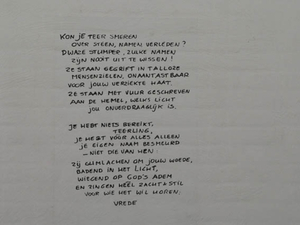 KON JE TEER SMEREN
OVER STEEN, NAMEN VERLEDEN?
DWAZE STUMPER, ZULKE NAMEN
ZIJN NOOIT UIT TE WISSEN!
ZE STAAN GEGRIFT IN TALLOZE
MENSENZIELEN, ONAANTASTBAAR
VOOR JOUW VERZIEKTE HAAT.
ZE STAAN MET VUUR GESCHREVEN
AAN DE HEMEL, WELKS LICHT
JOU ONVERDRAAGLIJK IS.
JE HEBT NIETS BEREIKT,
TEERLING,
JE HEBT VOOR ALLES ALLEEN
JE EIGEN NAAM BESMEURD
_ NIET DIE VAN HEN.
ZIJ GLIMLACHEN OM JOUW WOEDE,
BADEND IN HET LICHT,
WIEGEND OP GOD'S ADEM
EN ZINGEN HEEL ZACHT & STIL
VOOR WIE HET WIL HOREN:
VREDE